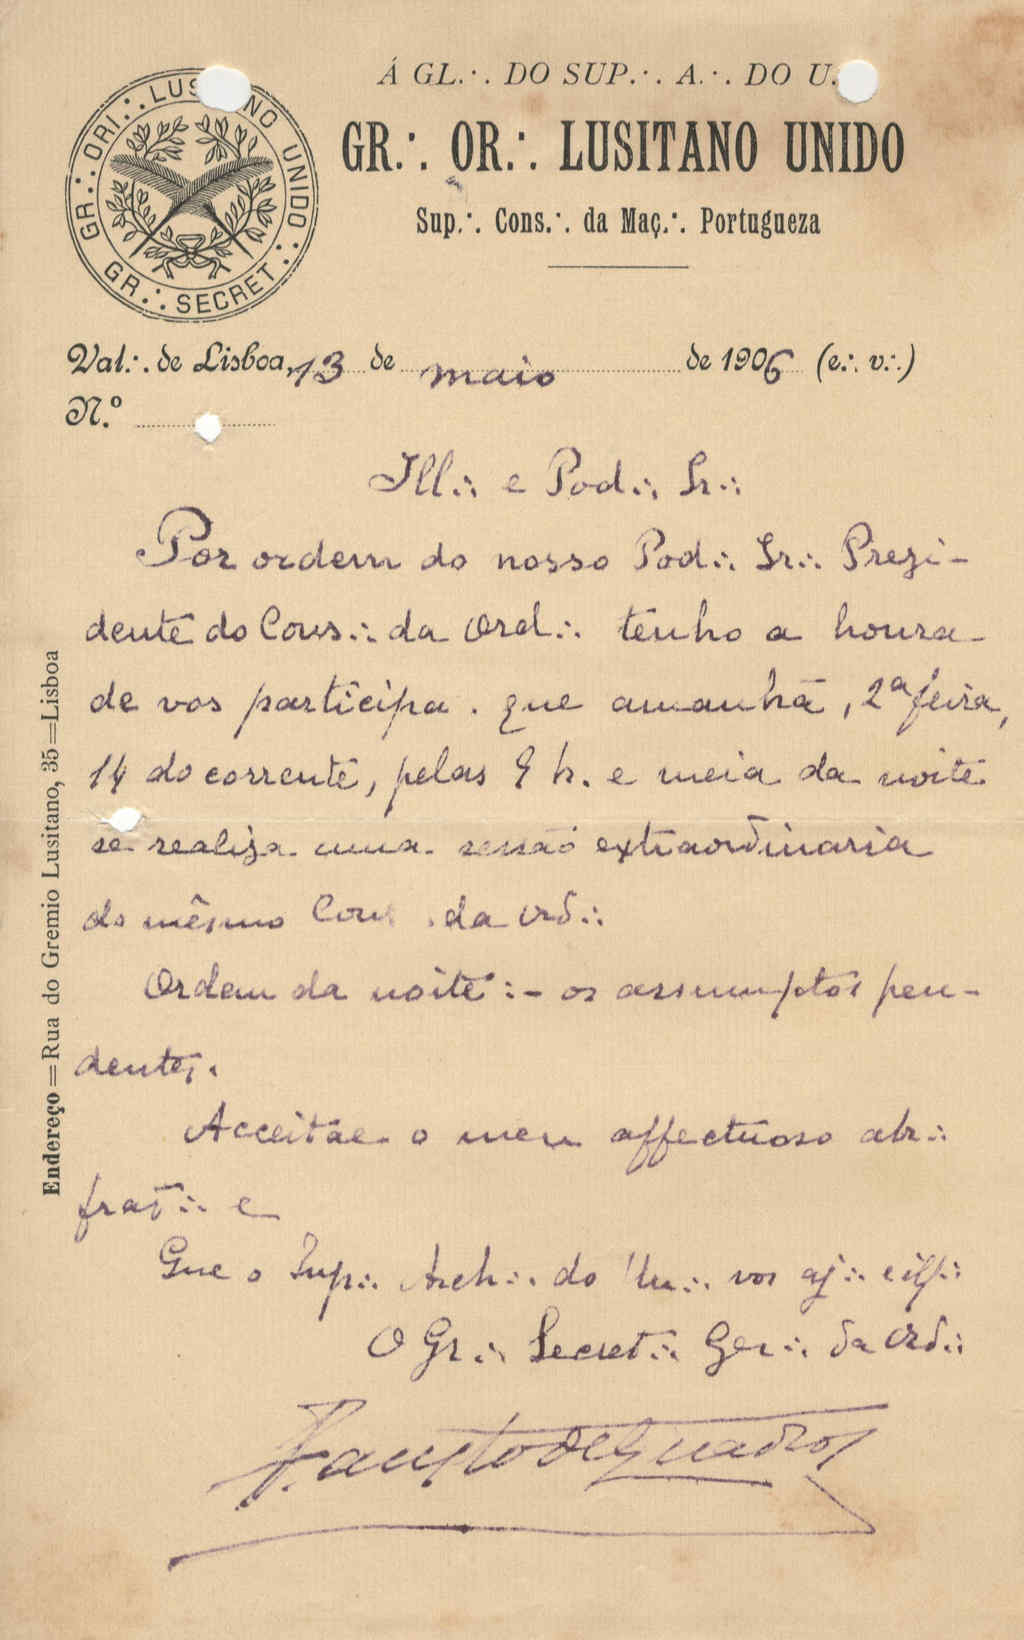 Á GL.·. DO SUP.·. A.·. DO U.
GR.·. OR.·. LUSITANO UNIDO
Sup.·. Cons.·. da Maç.·. Portugueza
GR.·. ORI.·. LUSITANO UNIDO.·.
GR.·. SECRET.·.
Val.·. de Lisboa, 13 de maio de 1906 (e.·. v.·.)
N.º
Ill.·. e Pod.·. Ir.·.
Por ordem do nosso Pod.·. Ir.·. Prezi-
dente do Cons.·. da Ord.·. tenho a honra
de vos participa. que amanhã, 2ª feira,
14 do corrente, pelas 9 h. e meia da noite
se realiza uma sessão extraordinaria
do mêsmo Cons .da Ord.·.
Ordem da noite:- os assumptos pen-
dentes.
Acceitae o meu affectuoso abr.·.
frat.·. e
Que o Sup.·. Arch.·. do Un.·. vos aj.·. e ill.·.
O Gr.·. Secret.·. Ger.·. da Ord.·.
Fausto de Quadros
Endereço=Rua do Gremio Lusitano, 35=Lisboa